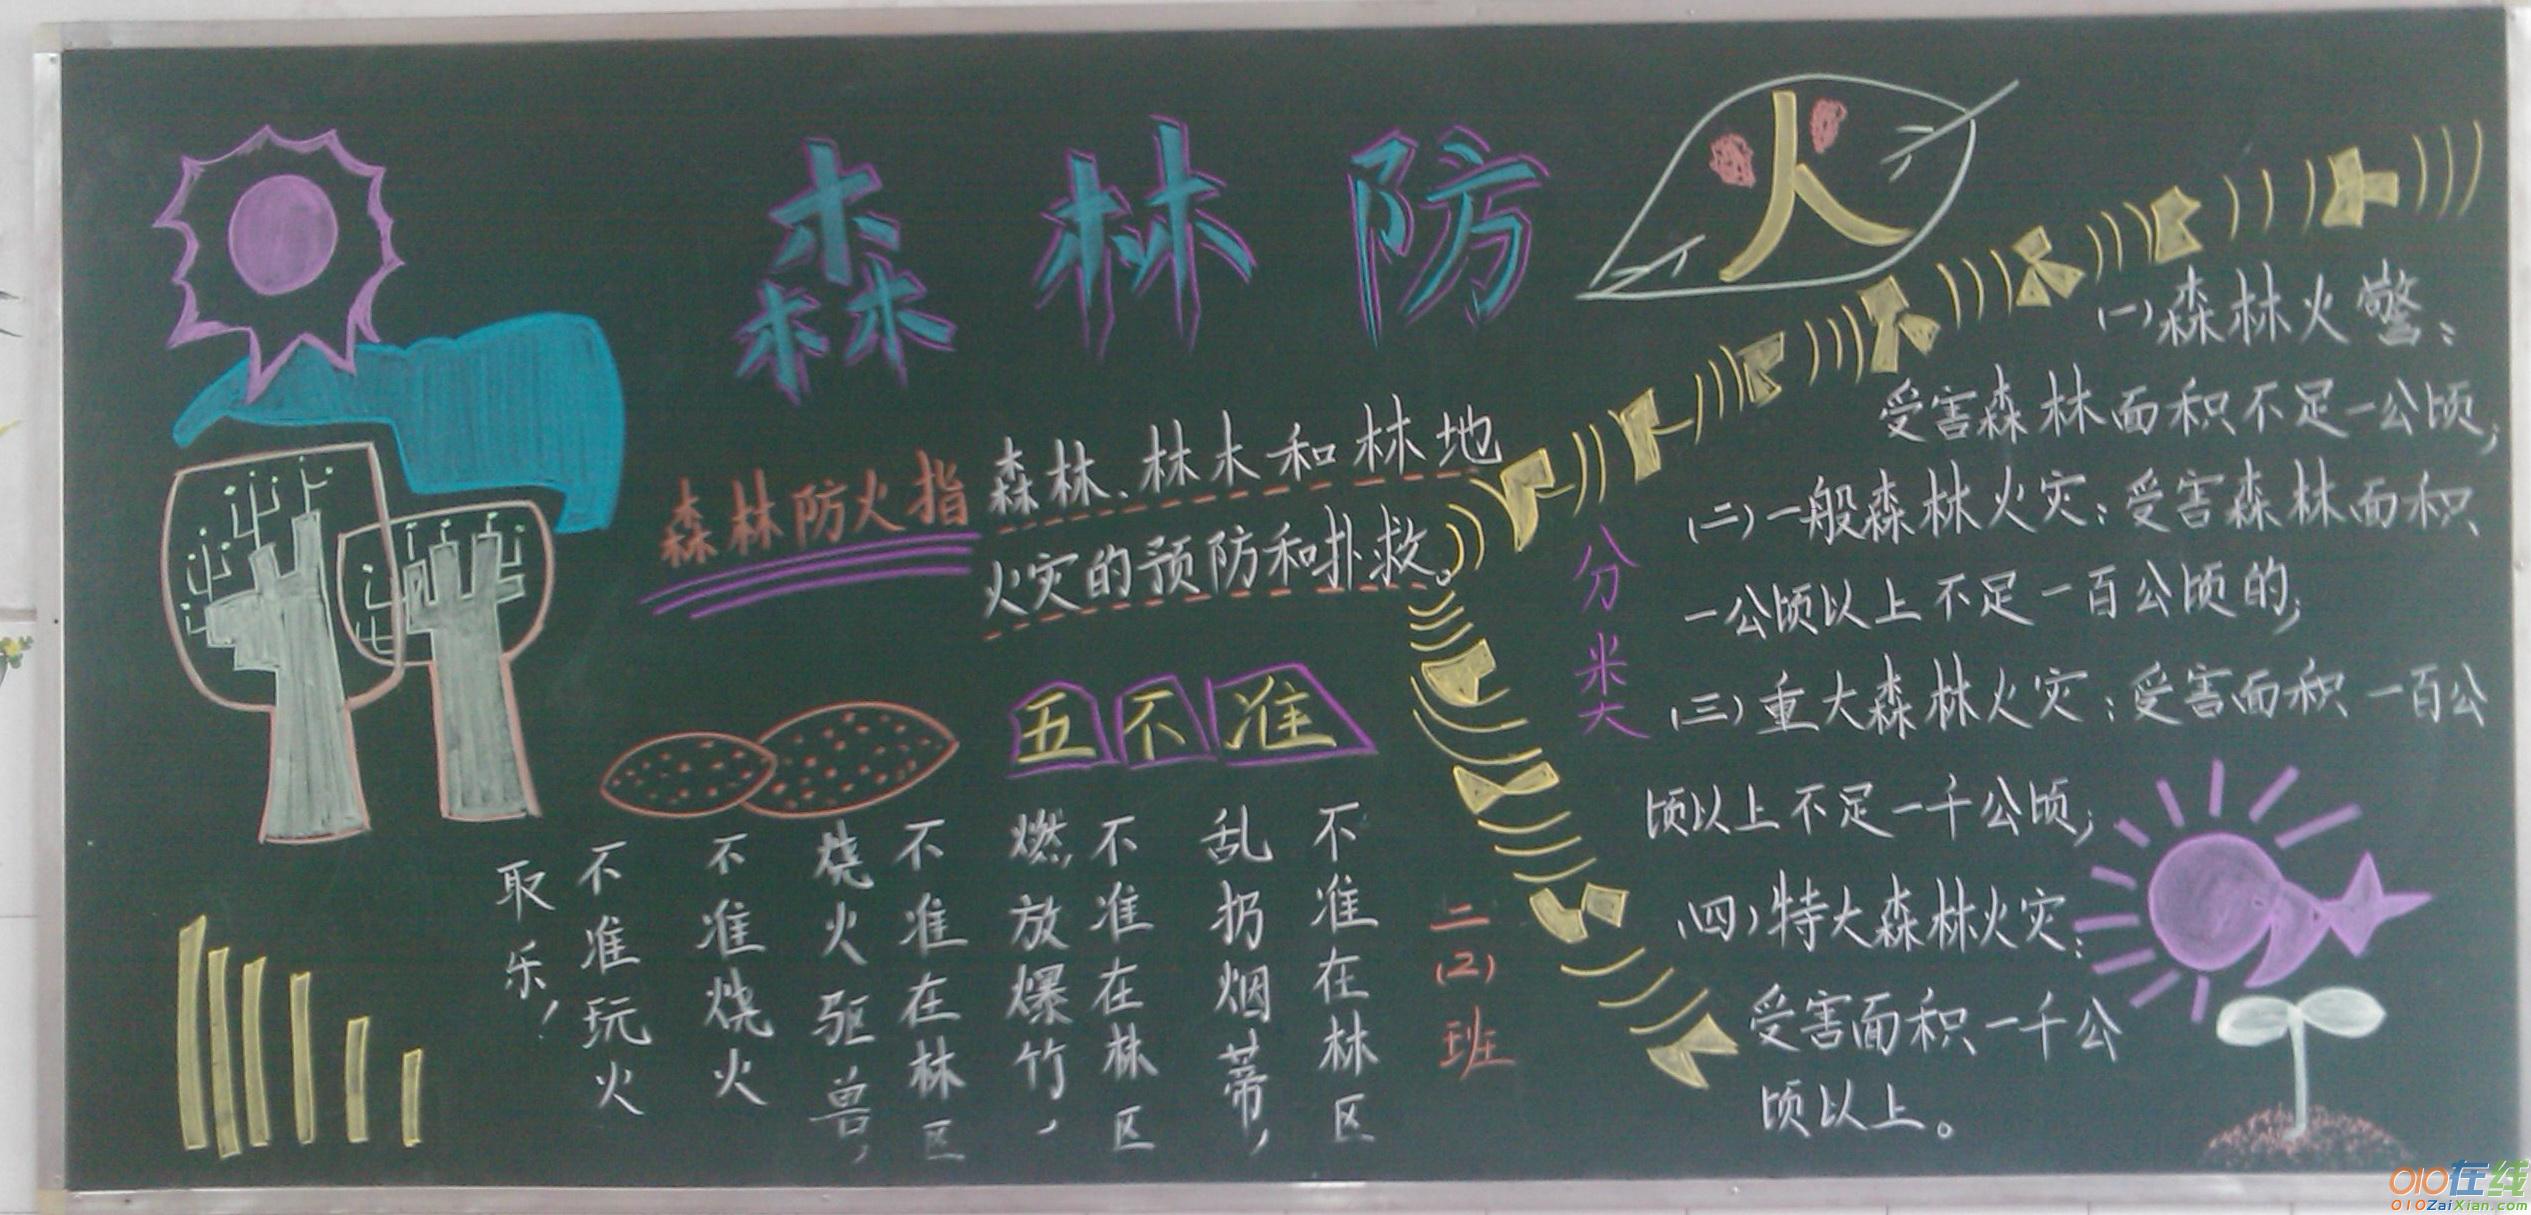 森林防火
森林防火指
森林、林木和林地
火灾的预防和扑救。
五不准
不准在林区
乱扔烟蒂,
不准在林区
燃放爆竹,
不准在林区
烧火驱兽,
不准烧火
不准玩火
取乐,
二(2)班
分类
(一)森林火警:
受害森林面积不足一公顷;
(二)一般森林火灾:受害森林面积
一公顷以上不足一百公顷的;
(三)重大森林火灾:受害面积一百公
顷以上不足一千公顷;
(四)特大森林火灾:
受害面积一千公
顷以上。
010在线
010ZaiXian.com